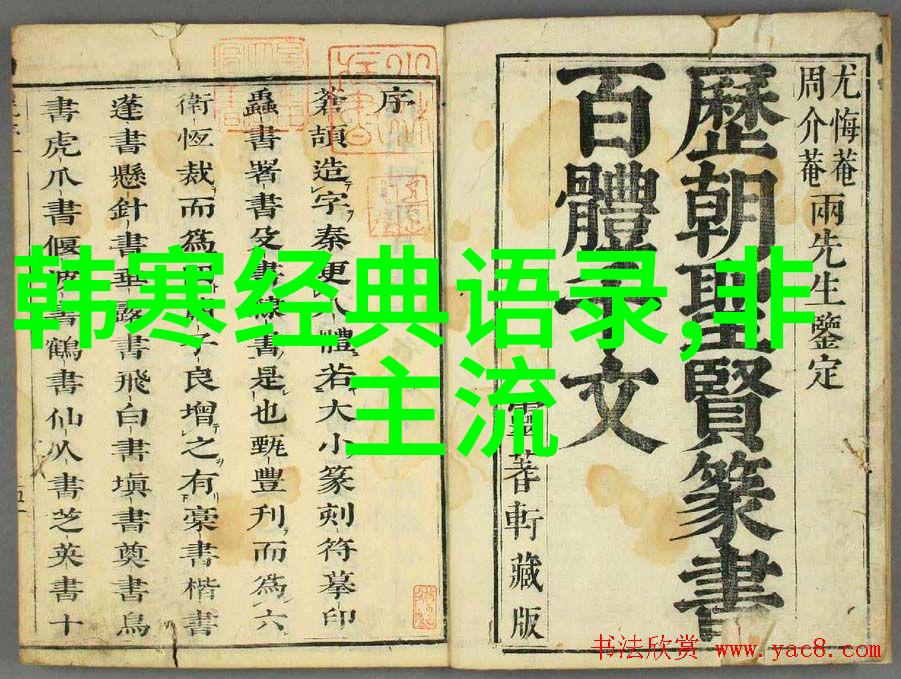 尤悔菴
周介菴
兩先生鑒定
歷朝聖賢篆書
百體千文
霊菴軒藏版
序
蒼頡造字秦更八體若大小篆刻符摹印
蟲書署書殳書隸書是也甄豐刋而爲六
衛恆裁而爲四
子良增之有藁書楷書
蓬書懸針書垂露書飛白書塡書奠書鳥
書虎爪書偃波書鶴書仙人書芝英書十
韩寒经典语录,非
主流
书法欣赏 www.yac8.com